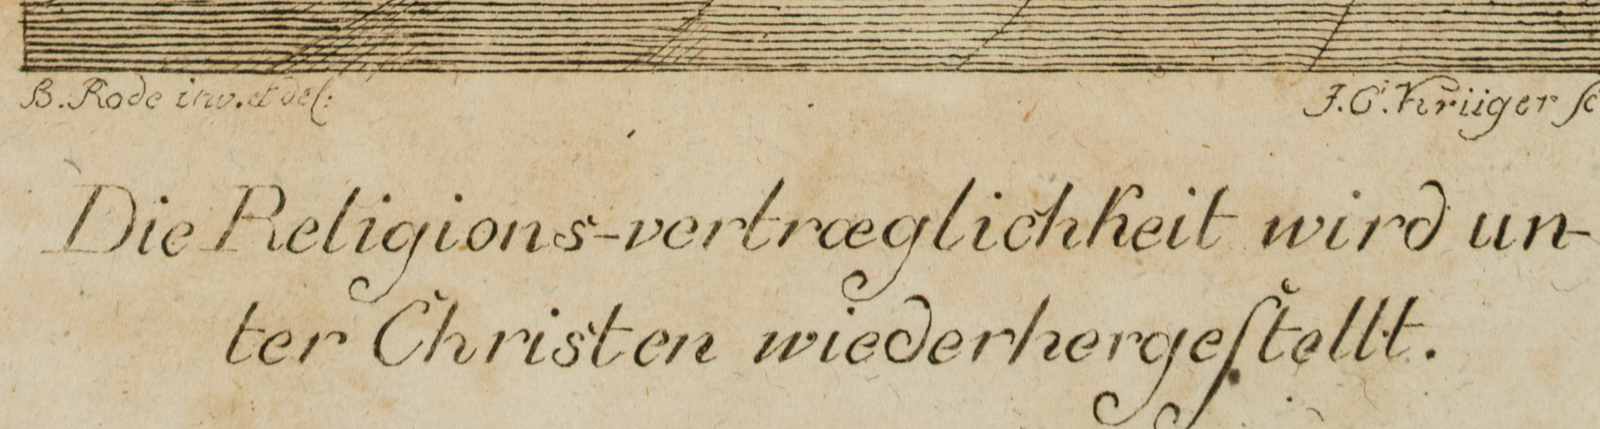 B. Rode inv. et del:
J. C. Krüger sc
Die Religions-vertræglichkeit wird un-
ter Christen wiederhergeſtellt.